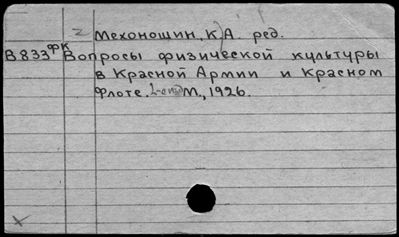 Мехоношин, К.А. ред.
В833фк Вопросы физической культуры
в Красной Армии и Красном
Флоте. М., 1926.